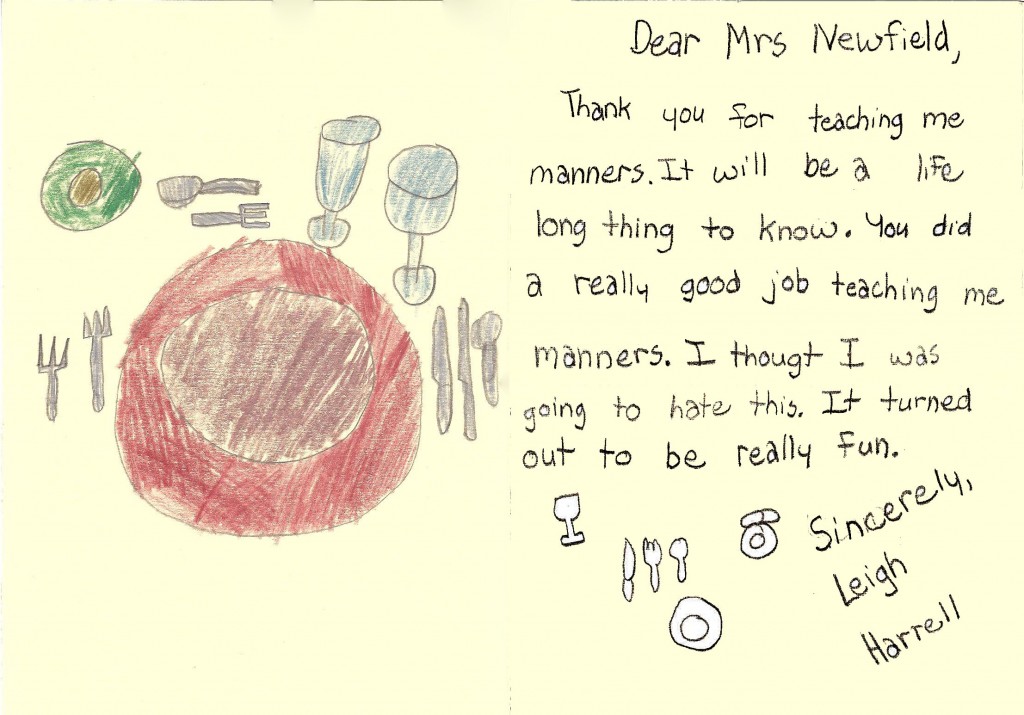 Dear Mrs Newfield,
Thank you for teaching me
manners. It will be a life
long thing to know. You did
a really good job teaching me
manners. I thougt I was
going to hate this. It turned
out to be really fun.
Sincerely,
Leigh
Harrell